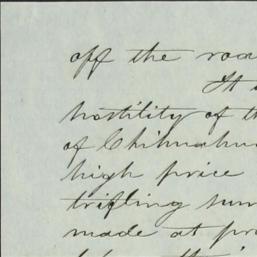 off the roa
It
hostility of th
of Chihuahua
high price
trifling sum
made at pr